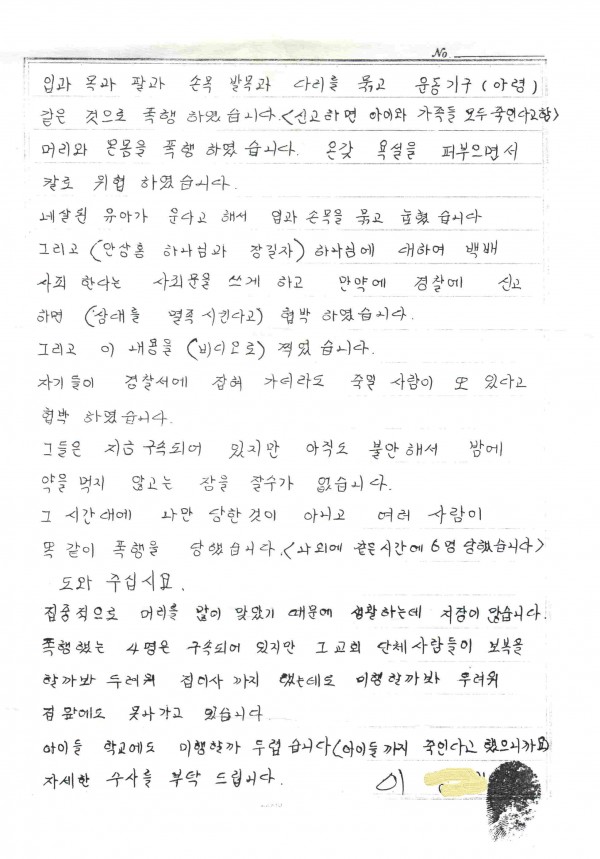 No.
입과 목과 팔과 손목 발목과 다리를 묶고 운동기구 (아령)
같은 것으로 폭행 하였습니다. <신고하면 아이와 가족들 모두 죽인다고함>
머리와 온몸을 폭행 하였습니다. 온갖 욕설을 퍼부으면서
칼로 위협 하였습니다.
네살된 유아가 운다고 해서 입과 손목을 묶고 습니다
그리고 (안상홍 하나님과 장길자) 하나님에 대하여 백배
사죄 한다는 사죄문을 쓰게 하고 만약에 경찰에 신고
하면 (삼대를 멸족 시킨다고) 협박 하였습니다.
그리고 이 내용을 (비디오로) 찍었 습니다.
자기들이 경찰서에 잡혀 가더라도 죽일 사람이 또 있다고
협박 하였습니다.
그들은 지금 구속되어 있지만 아직도 불안해서 밤에
약을 먹지 않고는 잠을 잘수가 없습니다.
그 시간대에 나만 당한것이 아니고 여러 사람이
똑 같이 폭행을 당했습니다. <나외에 같은시간에 6명 당했습니다>
도와 주십시요.
집중적으로 머리를 많이 맞았기 때문에 생활하는데 지장이 많습니다.
폭행했는 4명은 구속되어 있지만 그교회 단체사람들이 보복을
할까봐 두려워 집이사 까지 했는데도 미행할까봐 두려워
집 앞에도 못나가고 있습니다
아이들 학교에도 미행할까 두렵습니다 (아이들까지 죽인다고 했으니까요)
자세한 수사를 부탁 드립니다. 이